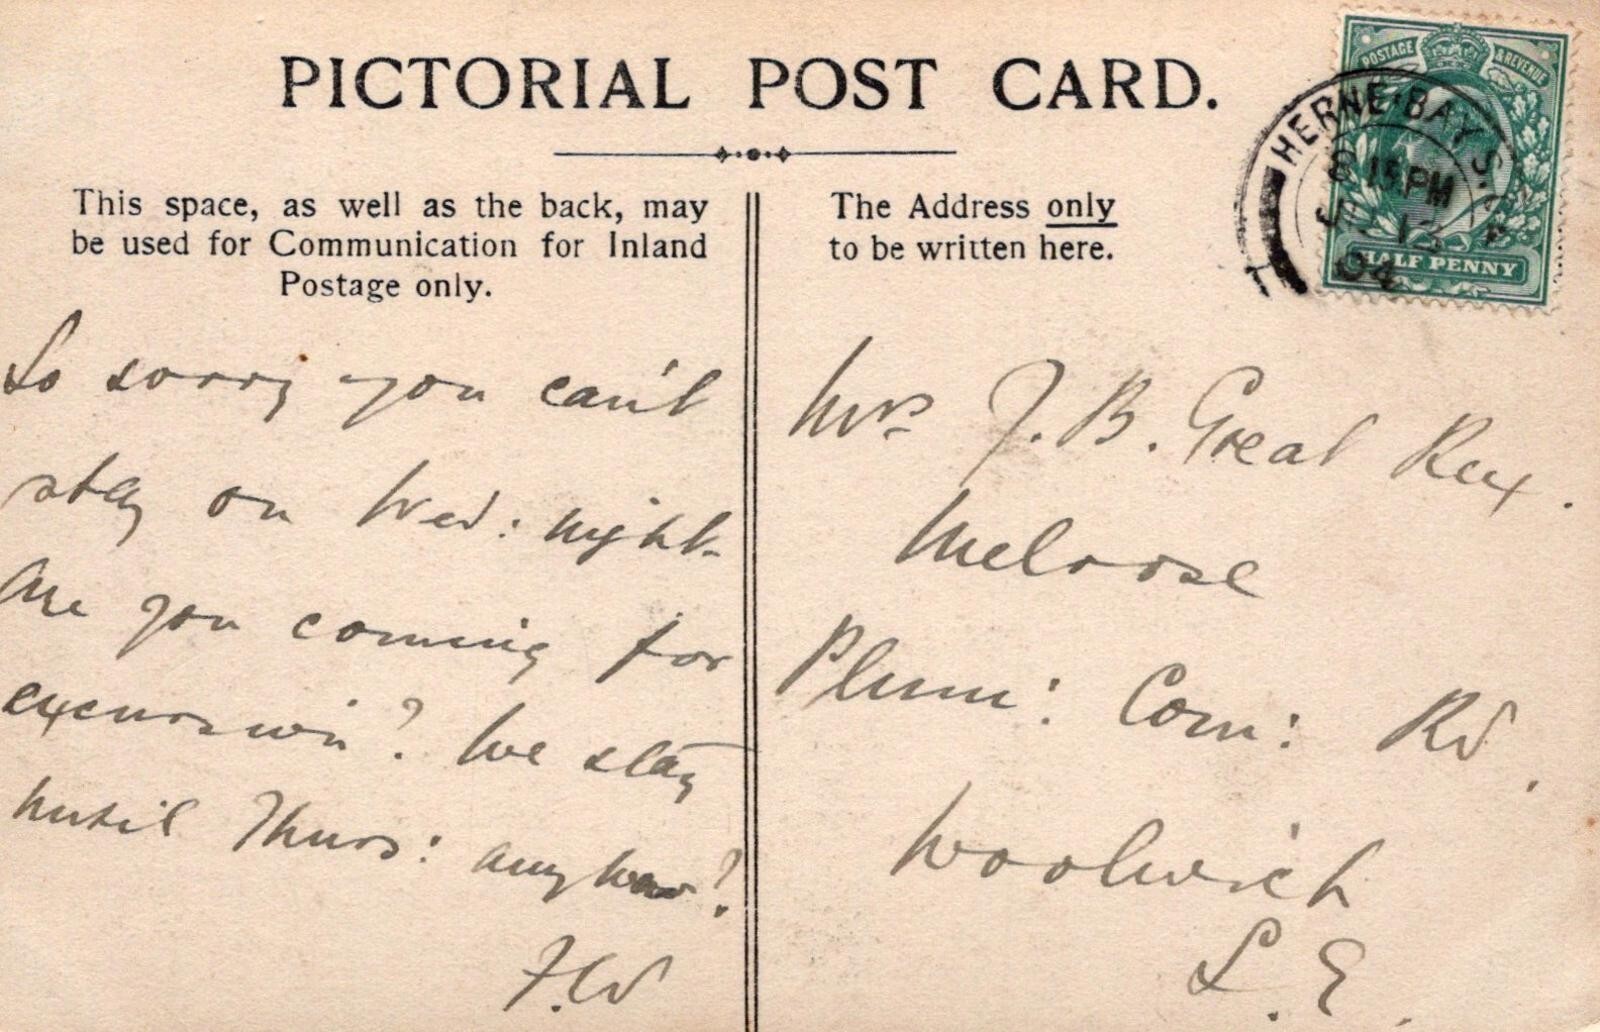 PICTORIAL POST CARD.
This space, as well as the back, may
be used for Communication for Inland
Postage only.
The Address only
to be written here.
POSTAGE & REVENUE
HALF PENNY
HERNE·BAY S.O
8 15 PM
13
04
So sorry you can't
stay on Wed: night.
Are you coming for
excursion? We stay
until Thurs: anyhow?
Mrs J. B. Great Rex.
Melrose
Plum: Com: Rd.
Woolwich
S. E.